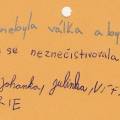 nebyla válka a by
se neznečisťovala
johanka, julinka, Ni
RIE